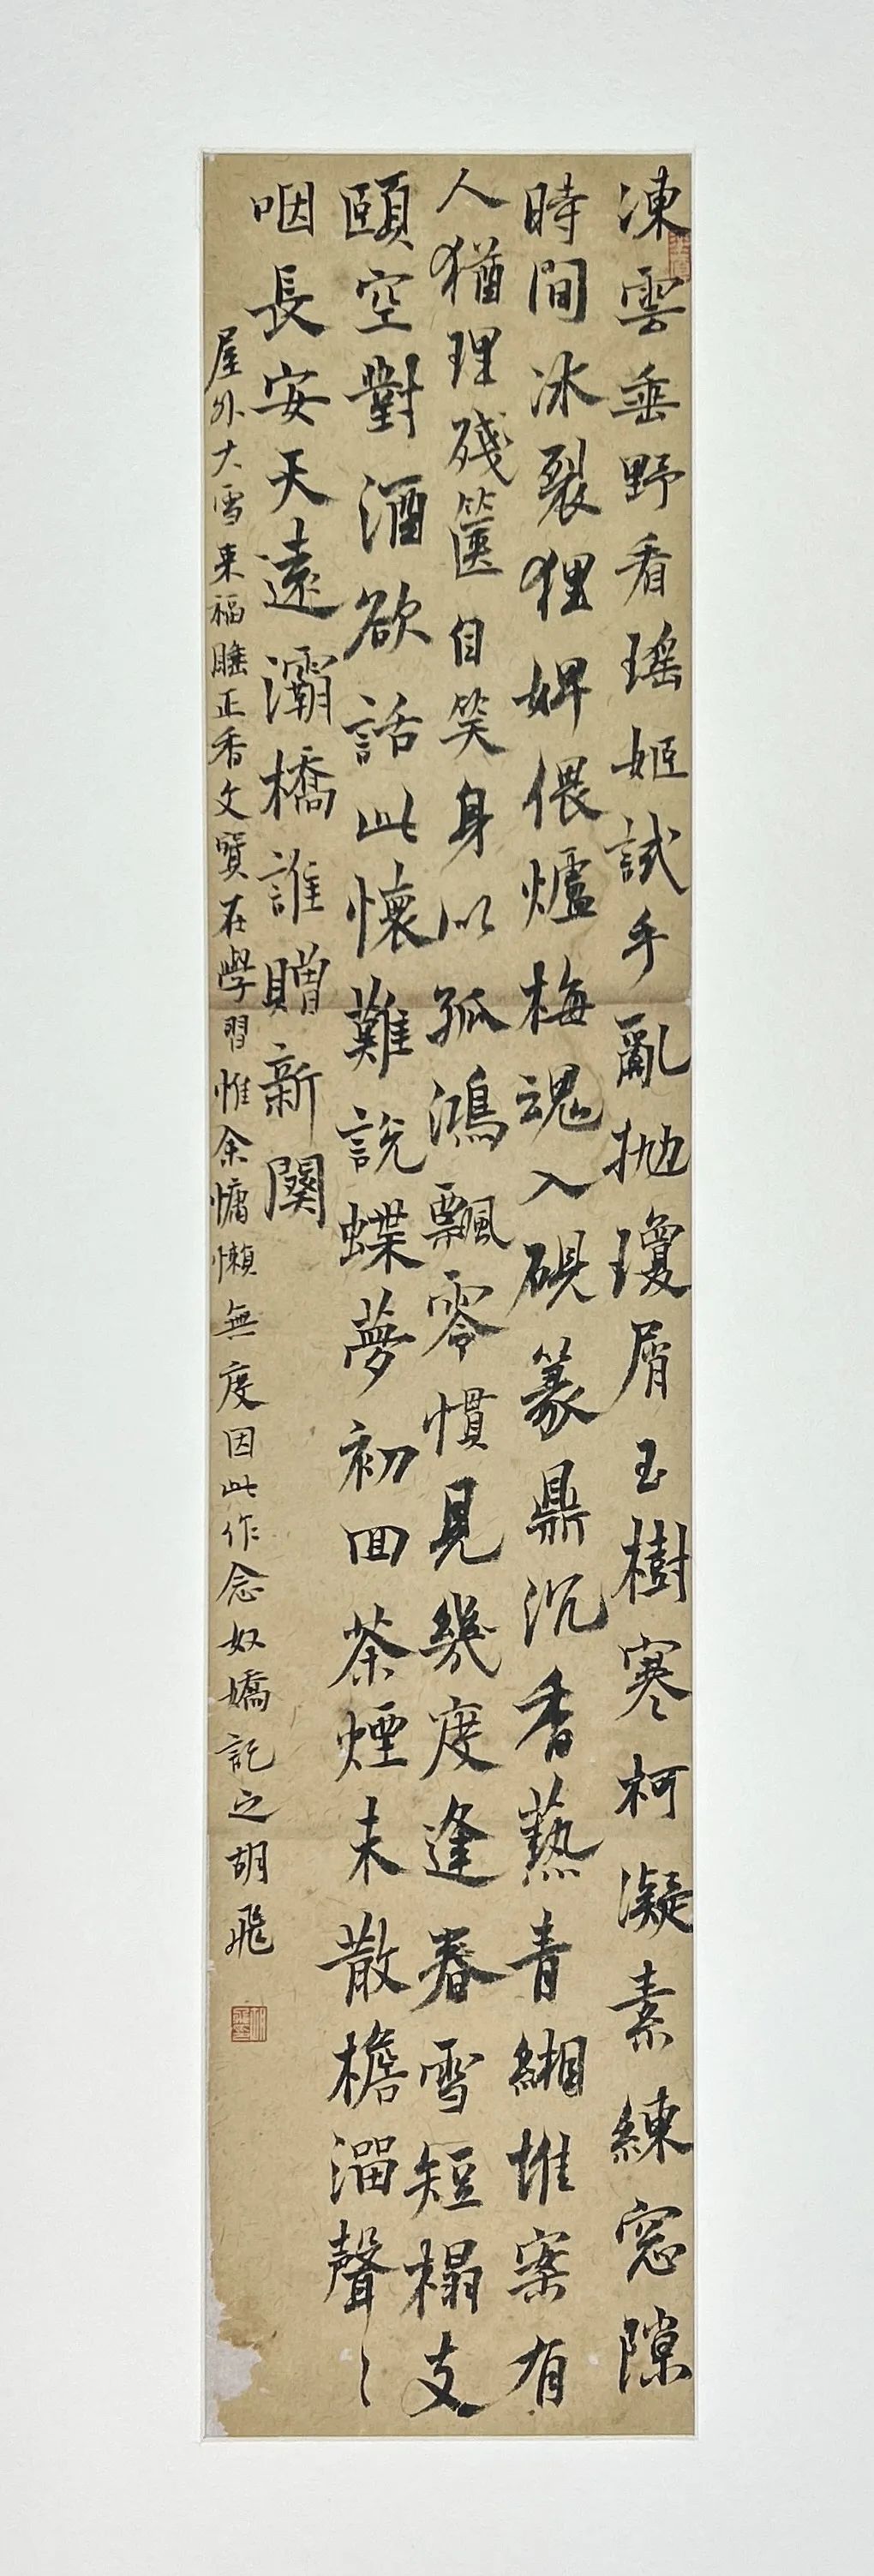 凍雲垂野看瑤姬試手亂拋瓊屑玉樹寒柯凝素練窓隙
時間冰裂狸婢偎爐梅魂入硯篆鼎沉香爇青緗堆案有
人猶理殘篋自笑身似孤鴻飄零慣見幾度逢春雪短榻支
頤空對酒欲話此懷難說蝶夢初回茶煙未散檐溜聲〻
咽長安天遠灞橋誰贈新闋
屋外大雪來福睡正香文賢在學習惟余慵懶無度因此作念奴嬌記之胡飛